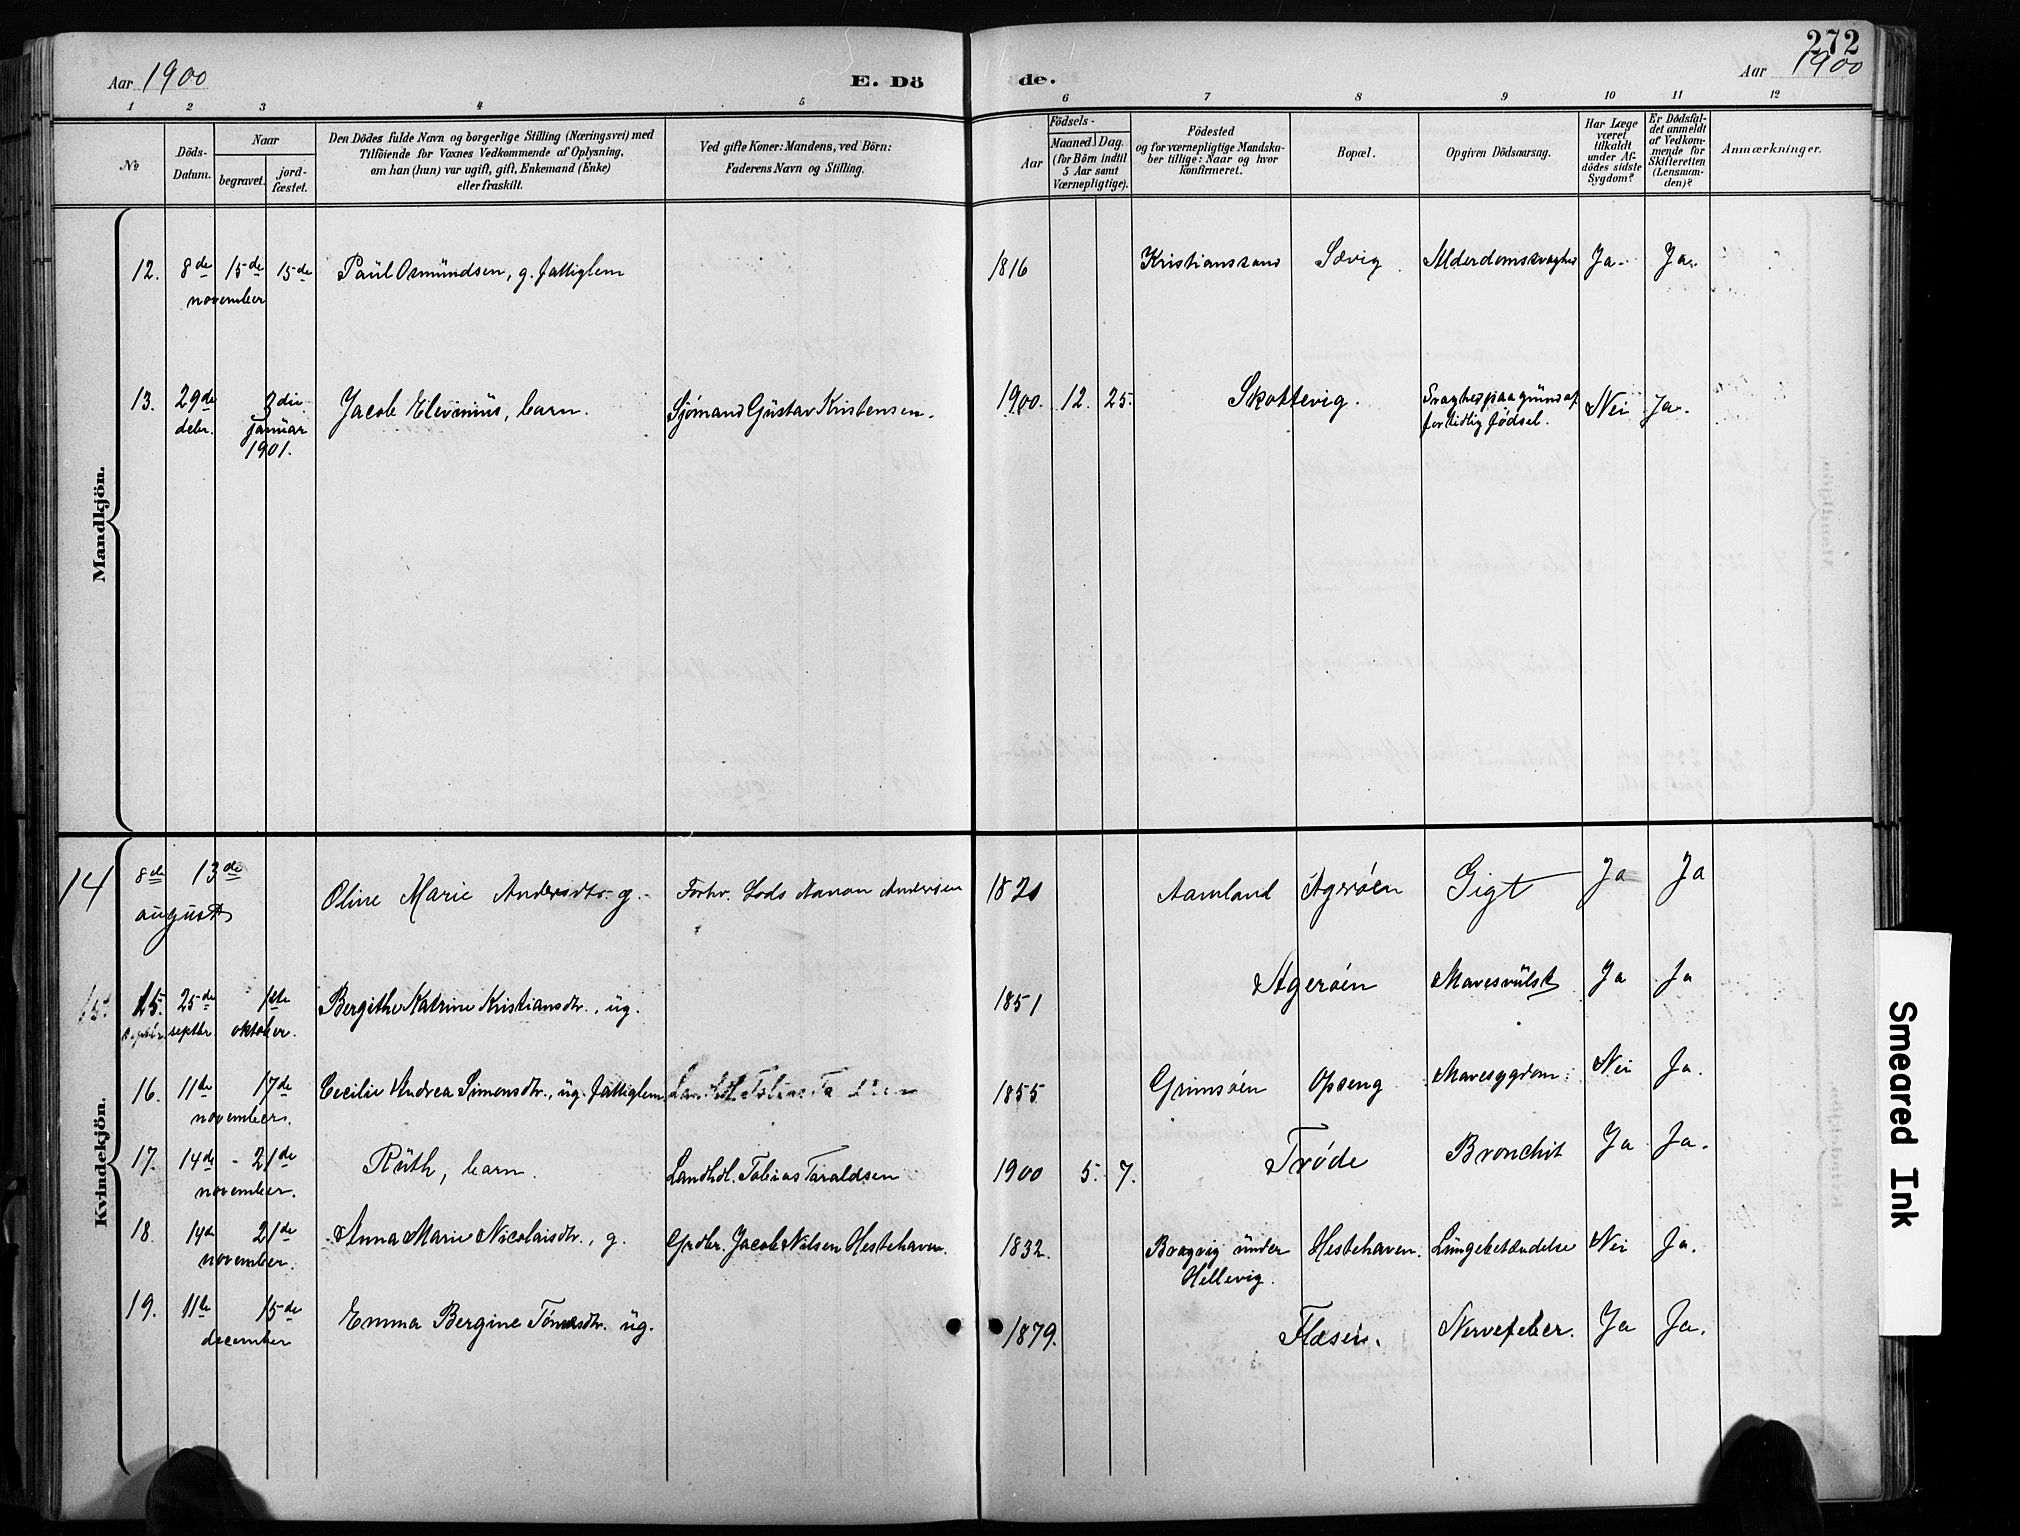 272
Aar 1900 E. Dö de. Aar 1900
1 2 3 4 5 6 7 8 9 10 11 12
No
Döds-Datum.
Naar
begravet.
jordfæstet.
Den Dödes fulde Navn og borgerlige Stilling (Næringsvei) med
Tilföiende for Voxnes Vedkommende af Oplysning,
om han (hun) var ugift, gift, Enkemand (Enke)
eller fraskilt.
Ved gifte Koner: Mandens, ved Börn:
Faderens Navn og Stilling.
Födsels-
Aar
Maaned. Dag.
(for Börn indtil
5 Aar samt
Værnepligtige).
Födested
og for værnepligtige Mandska-
ber tillige: Naar og hvor
konfirmeret.
Bopæl.
Opgiven Dödsaarsag.
Har Læge
været
tilkaldt
under Af-
dödes sidste
Sygdom?
Er Dödsfal-
det anmeldt
af Vedkom-
mende for
Skifteretten
(Lensman-
den)?
Anmærkninger.
Mandkjön.
12. 8de 15de 15de Paul Osmundsen, g. fattiglem 1816 Kristianssand Sævig Alderdomssvaghed Ja. Ja.
november
13. 29de 3die Jacob Elevinius, barn. Sjømand Gustav Kristensen. 1900. 12. 25. Skottevig. Svaghed paa grund af Nei Ja.
debr. januar for tidlig fødsel.
1901.
Kvindekjön.
14 8de 13de Oline Marie Andersdtr. g. Forhv. Lods Aanon Andersen 1821 Aamland Agerøen Gigt Ja Ja
august
15. 15. 25de 1ste Bergithe Katrine Kristiansdtr., ug. 1851 Agerøen Mavesvulst Ja Ja
septbr. oktober.
16. 11de 17de Cecilie Andrea Simonsdtr., ug. fattiglem Landhdl. Tobias 1855 Grimsøen Opseng Mavesygdom. Nei Ja.
november.
17. 14de - 21de Ruth, barn. Landhdl. Tobias Taraldsen 1900 5. 7. Trøde Bronchit Ja Ja.
november.
18. 14de 21de Anna Marie Nicolaisdtr., g. Grdbr. Jacob Nilsen Hestehaven. 1832. Braagvig under Hestehaven. Lungebetændelse Nei Ja.
november. Hellevig.
19. 11te 15de Emma Bergine Tomasdtr. ug. 1879. Flæsen. Nervefeber. Ja Ja.
december
Smeared Ink